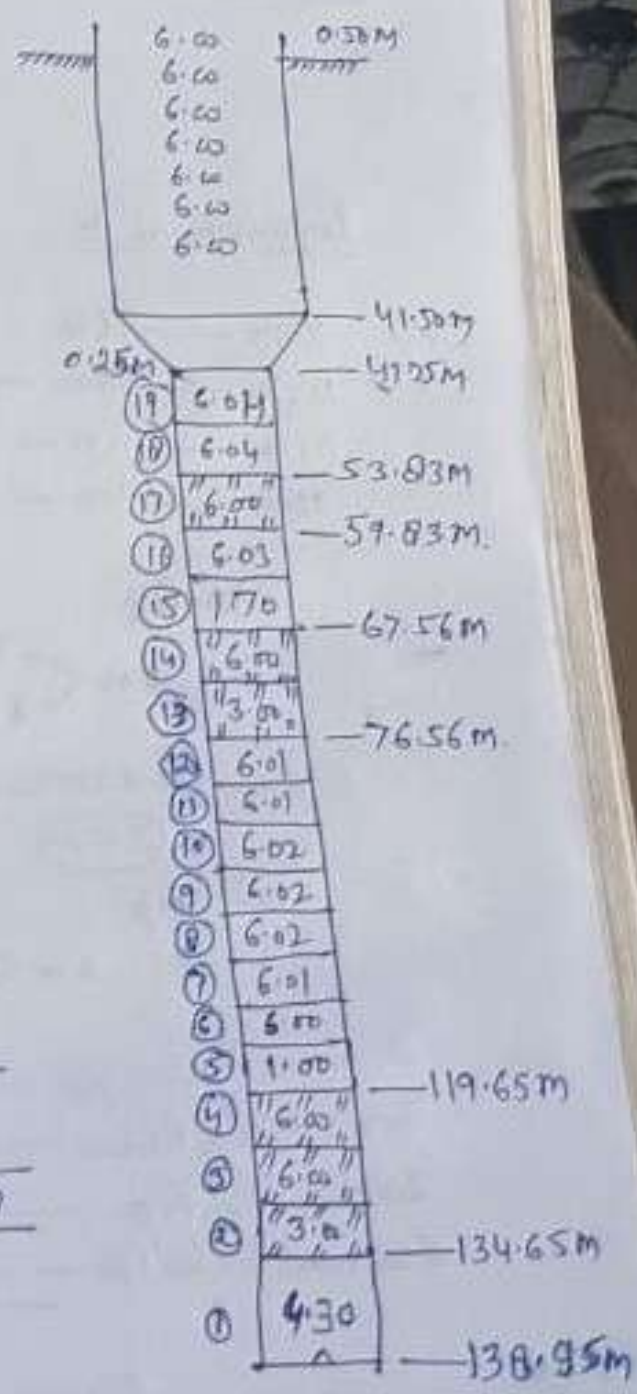 6.00 0.50M
6.00
6.00
6.00
6.00
6.00
6.00
41.50m
0.25M 41.75M
19 6.04
18 6.04
53.83M
17 6.00
59.83M.
16 6.03
15 1.70
67.56M
14 6.00
13 3.00
76.56M.
12 6.01
11 6.01
10 6.02
9 6.02
8 6.02
7 6.01
6 6.00
5 1.00
119.65M
4 6.00
3 6.00
2 3.0
134.65M
1 4.30
138.95m